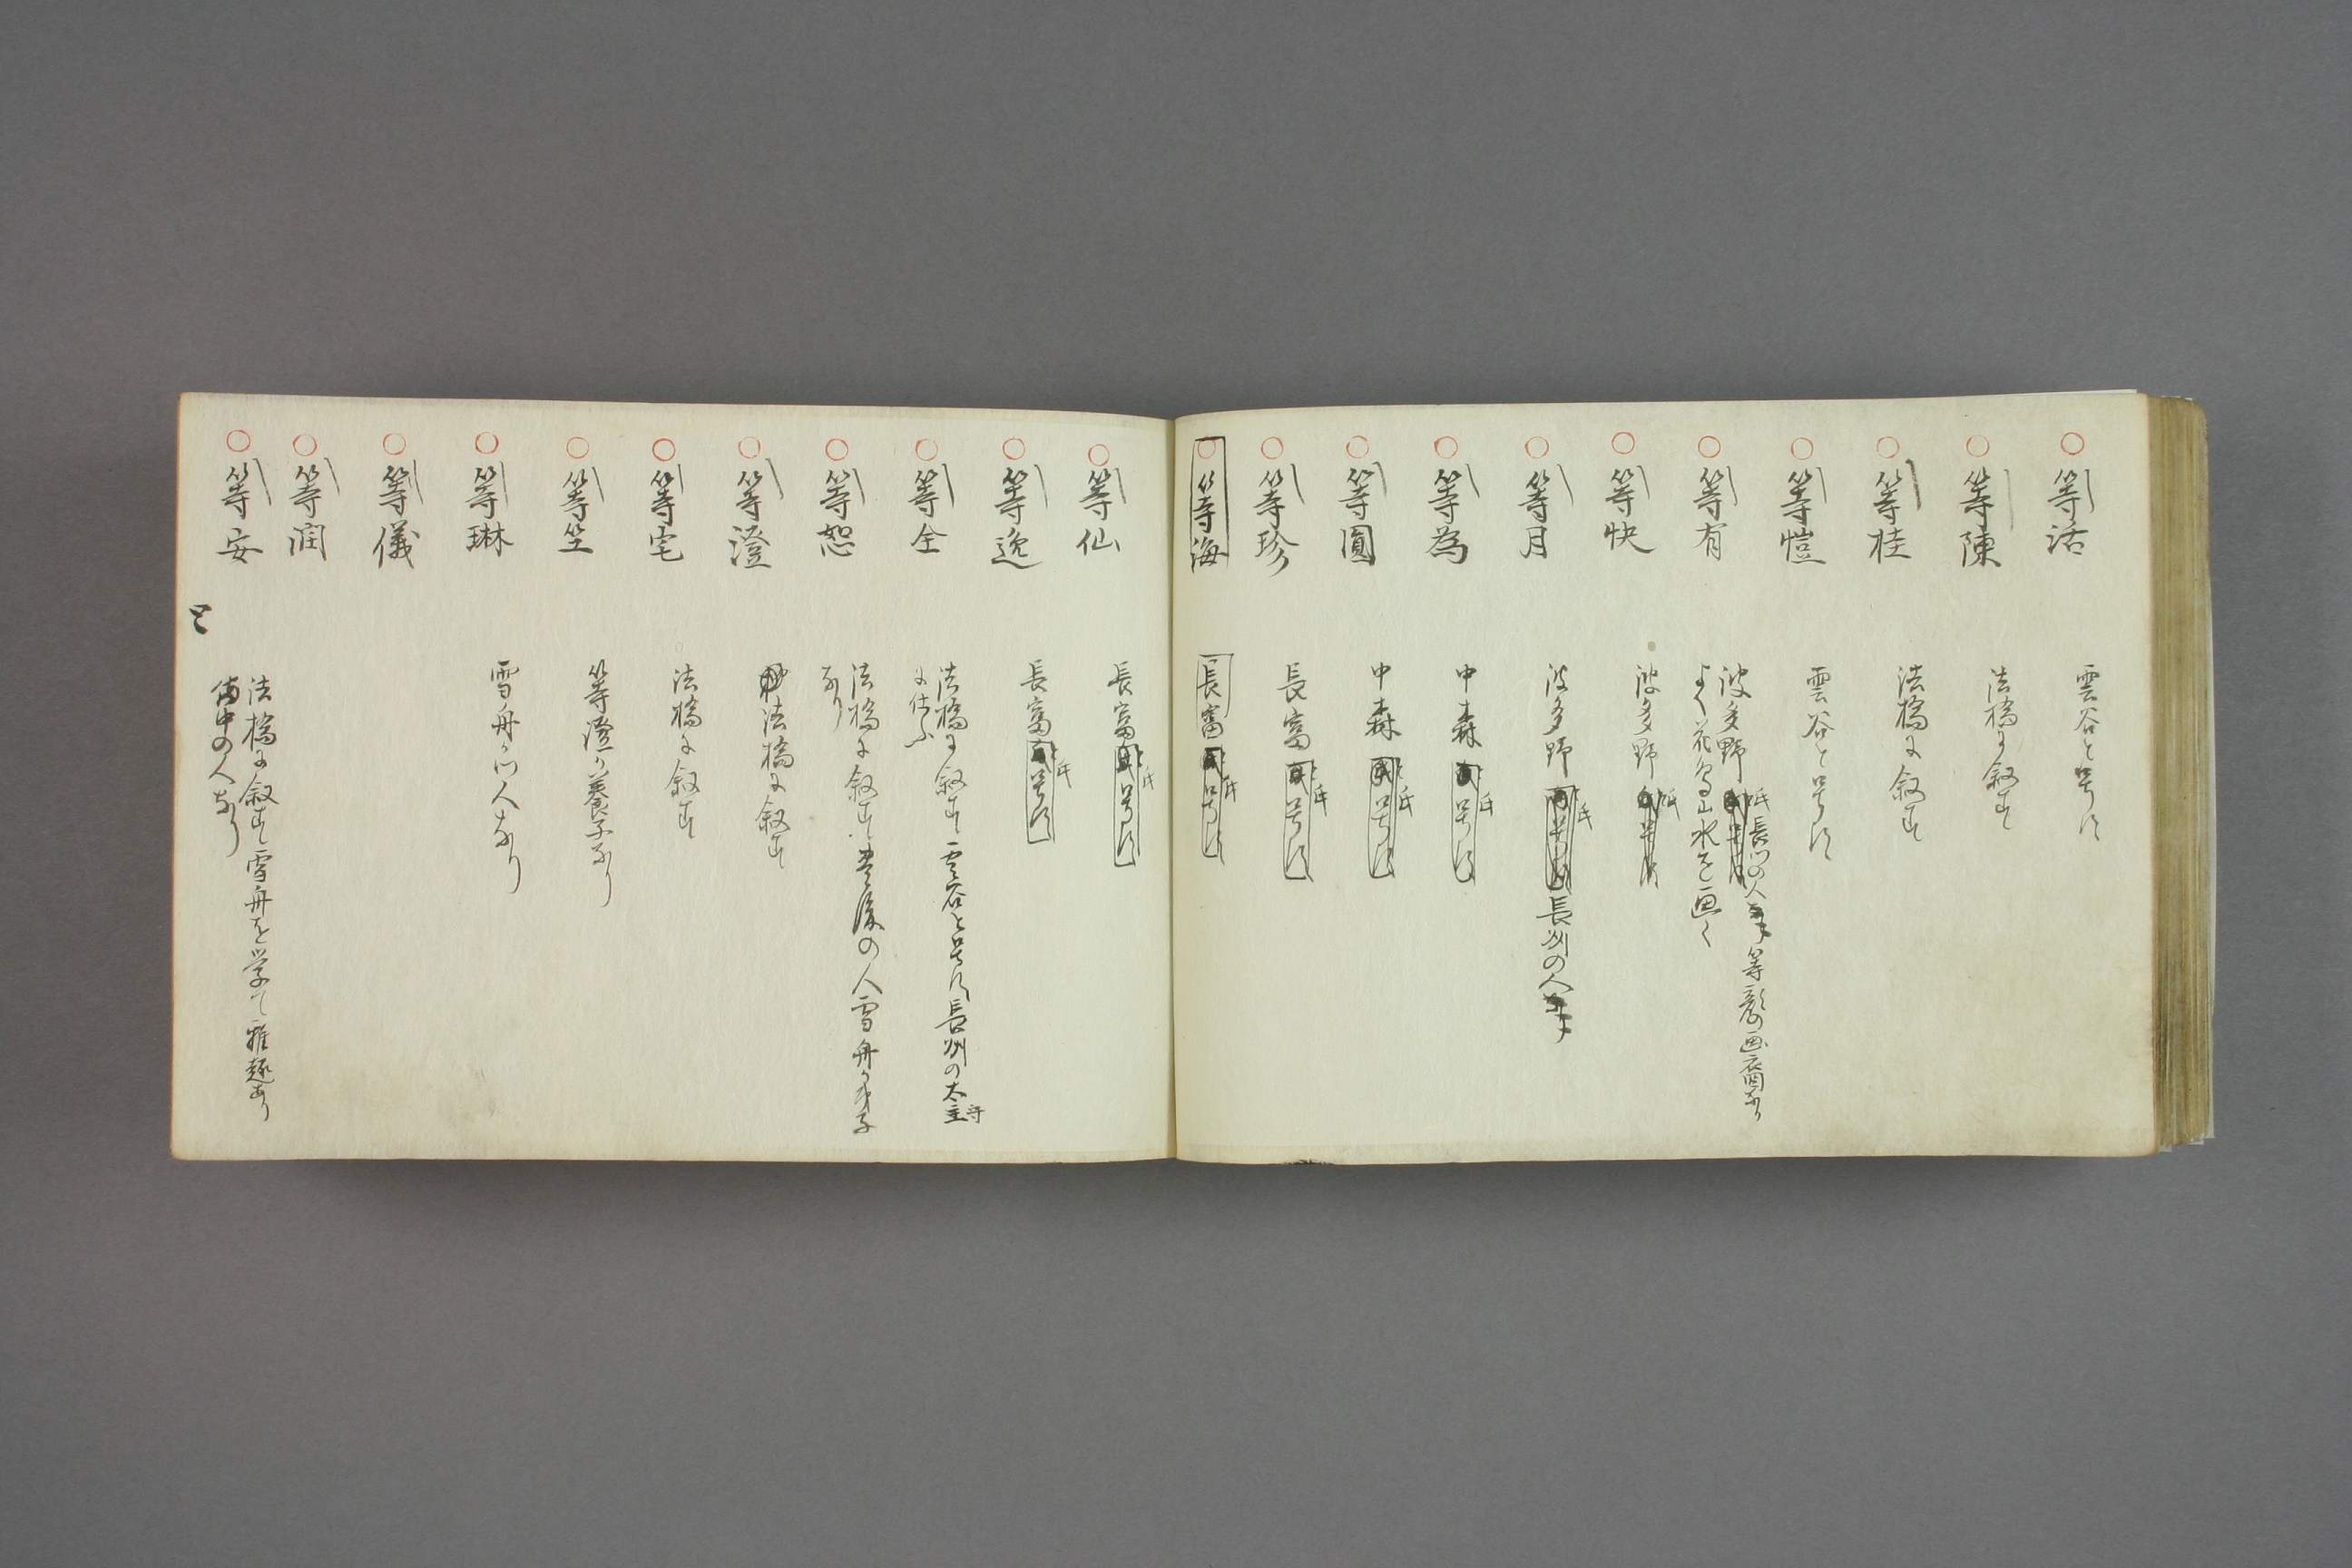 等活
雲谷と号す
等陳
法橋に叙す
等桂
法橋に叙す
等愷
雲谷と号す
等有
波多野氏長門の人等顔の画裔なり
よく花鳥山水を画く
等快
波多野氏
等月
波多野氏長州の人
等為
中森と号す氏
等圓
中森と号す氏
等珍
長富と号す氏
等海
長富と号す氏
等仙
長富と号す氏
等逸
長富と号す氏
等全
法橋に叙す雲谷と号す長州の太守
に仕ふ
等恕
法橋に叙す豊後の人雪舟の弟子
なり
等澄
法橋に叙す
等宅
法橋に叙す
等坐
等澄の養子なり
等琳
雪舟の門人なり
等儀
等潤
等安
法橋に叙す雪舟を学て雅趣あり
備中の人なり
と